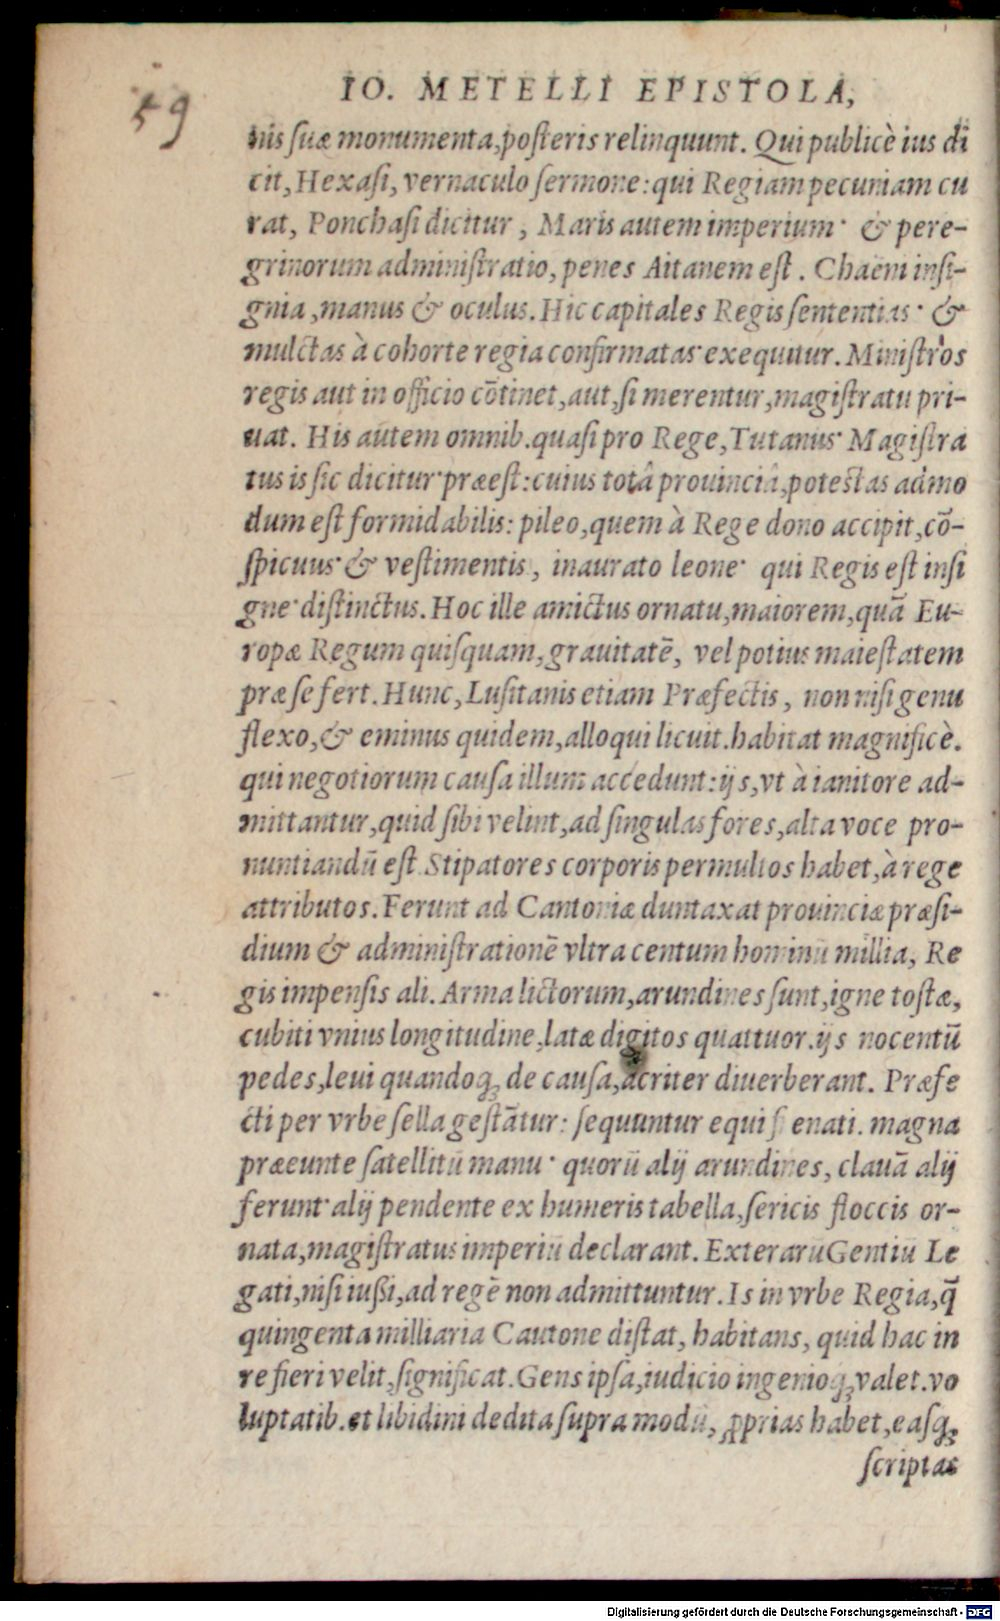 59
IO. METELLI EPISTOLA,
nis suæ monumenta, posteris relinquunt. Qui publicè ius di
cit, Hexasi, vernaculo sermone: qui Regiam pecuniam cu
rat, Ponchasi dicitur, Maris autem imperium· & pere-
grinorum administratio, penes Aitanem est. Chaëni insi-
gnia, manus & oculus. Hic capitales Regis sententias· &
mulctas à cohorte regia confirmatas exequitur. Ministros
regis aut in officio cōtinet, aut, si merentur, magistratu pri-
uat. His autem omnib. quasi pro Rege, Tutanus· Magistra
tus is sic dicitur· præest: cuius totâ prouinciâ, potestas admo
dum est formidabilis: pileo, quem à Rege dono accipit, cō-
spicuus· & vestimentis, inaurato leone· qui Regis est insi
gne· distinctus. Hoc ille amictus ornatu, maiorem, quā Eu-
ropæ Regum quisquam, grauitatē, vel potius maiestatem
præ se fert. Hunc, Lusitanis etiam Præfectis, non nisi genu
flexo, & eminus quidem, alloqui licuit. habitat magnificè.
qui negotiorum causa illum accedunt: ijs, vt à ianitore ad-
mittantur, quid sibi velint, ad singulas fores, alta voce pro-
nuntiandū est. Stipatores corporis permultos habet, à rege
attributos. Ferunt ad Cantoniæ duntaxat prouinciæ præsi-
dium & administrationē vltra centum hominū millia, Re
gis impensis ali. Arma lictorum, arundines sunt, igne tostæ,
cubiti vnius longitudine, latæ digitos quattuor. ijs nocentū
pedes, leui quandoq; de causa, acriter diuerberant. Præfe
cti per vrbē sella gestātur: sequuntur equi enati. magna
præeunte satellitū manu· quorū alij arundines, clauā alij
ferunt· alij pendente ex humeris tabella, sericis floccis or-
nata, magistratus imperiū declarant. Exterarū Gentiū Le
gati, nisi iussi, ad regē non admittuntur. Is in vrbe Regia, q̄
quingenta milliaria Cautone distat, habitans, quid hac in
re fieri velit, significat. Gens ipsa, iudicio ingenioq; valet. vo
luptatib. et libidini dedita supra modū, ꝓprias habet, easq;
scriptas